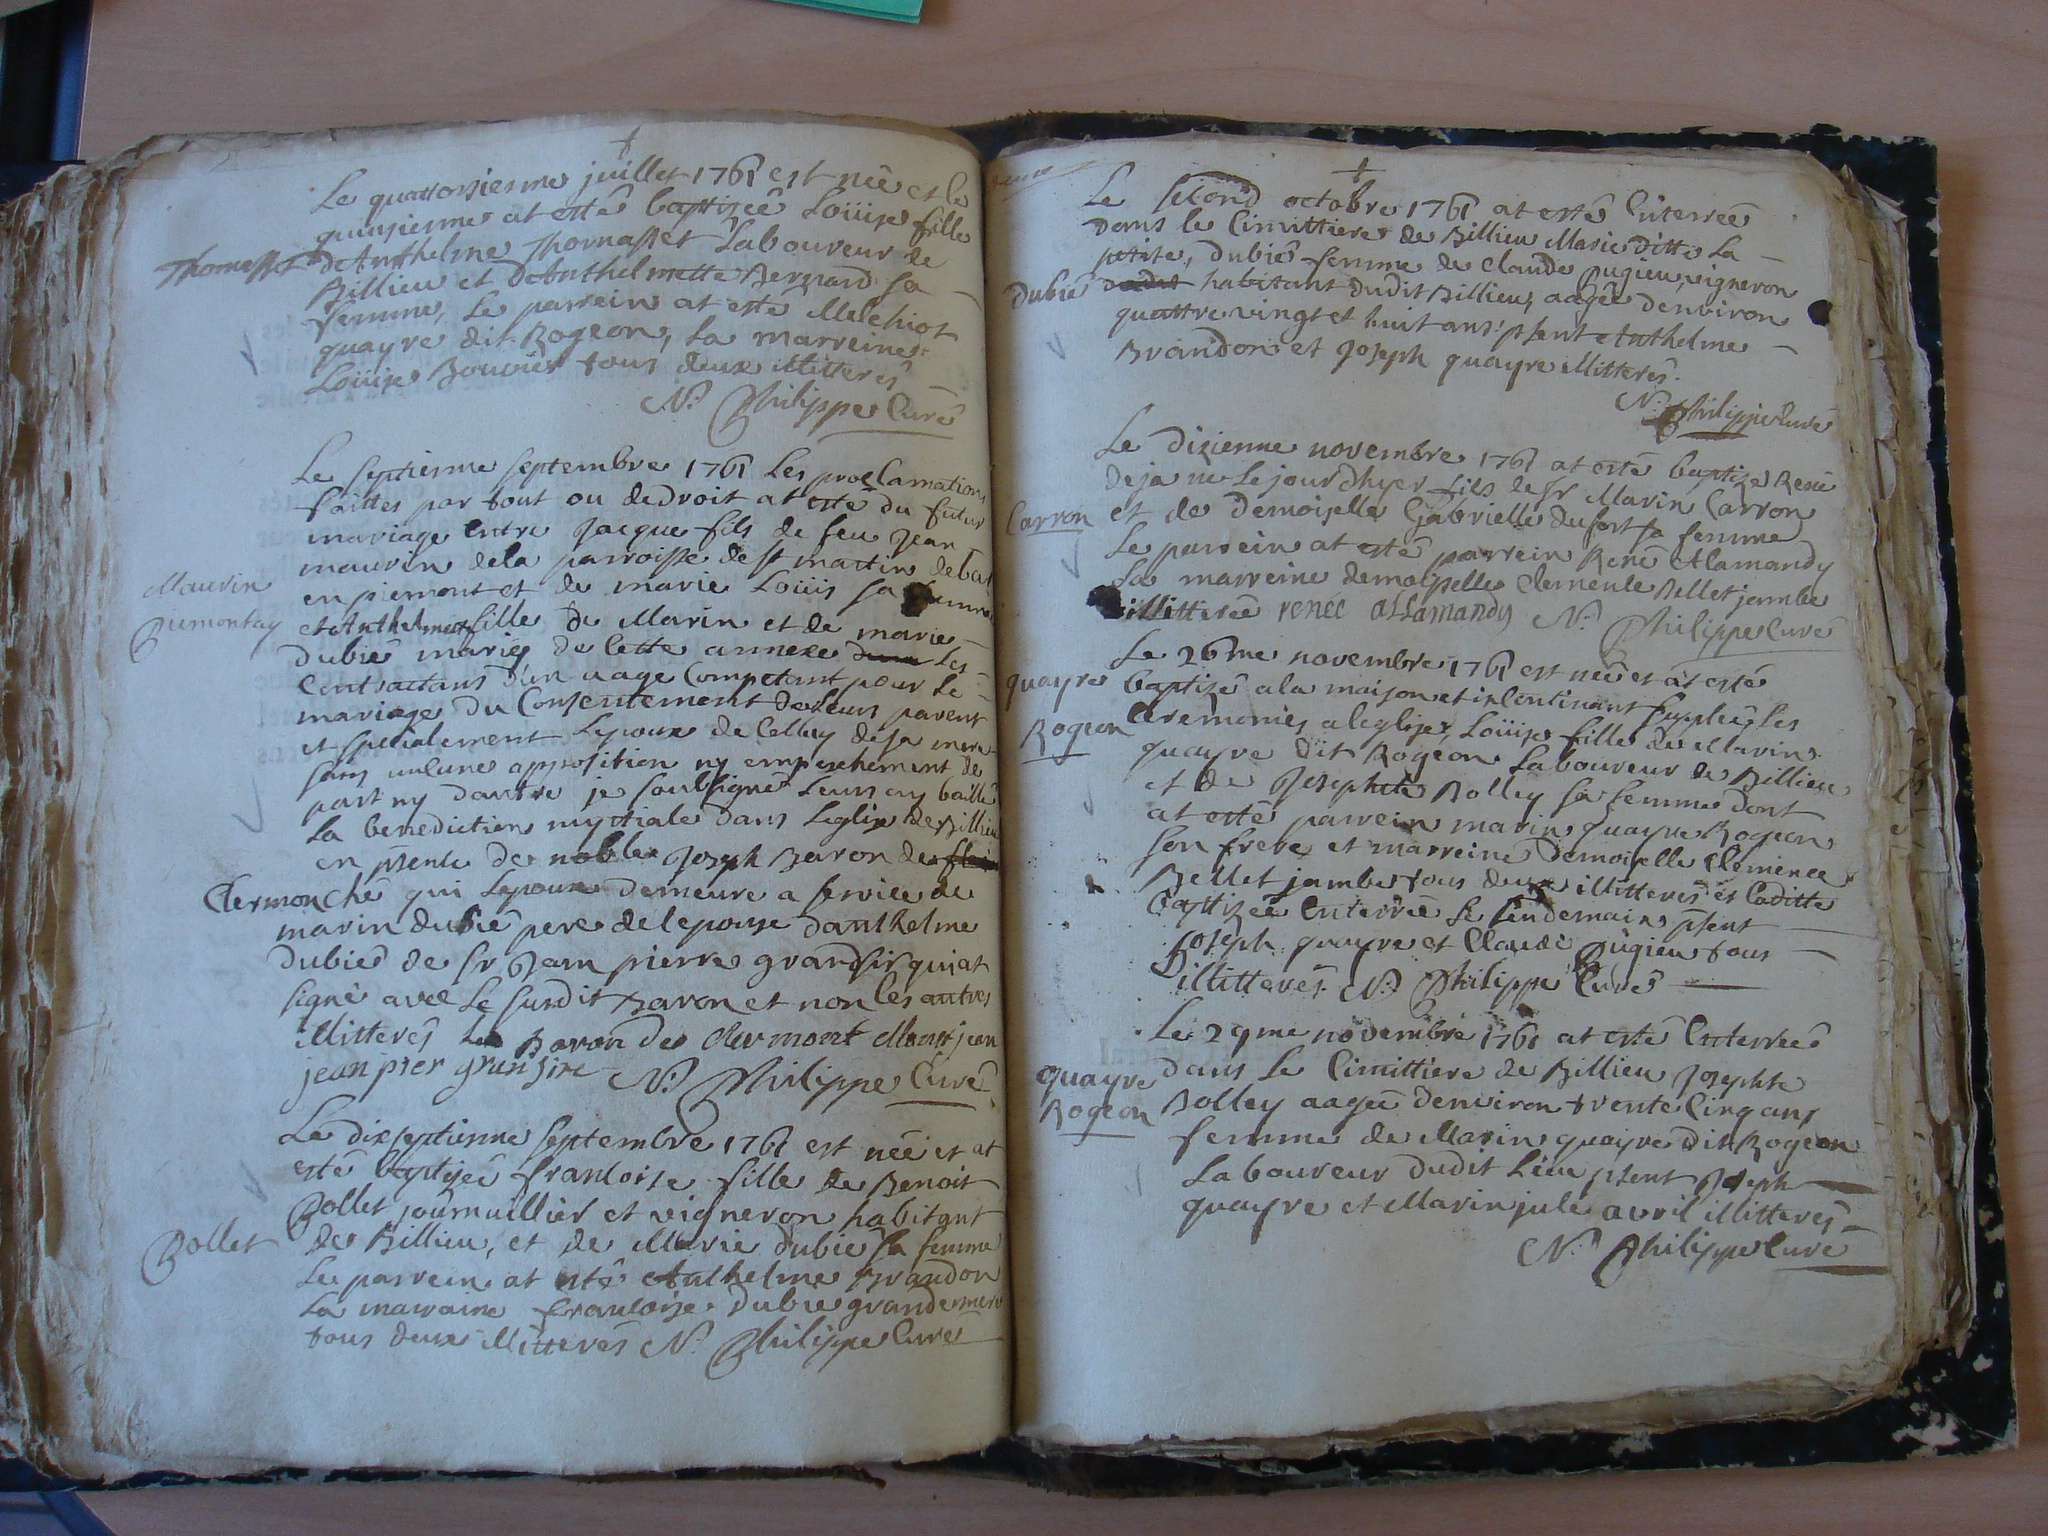 Le quattorsiesme juillet 1761 est née et le
quinsieme at estée baptisée Loüise fille
Thomasset
d'Anthelme Thomasset Laboureur de
Billieu et d'Anthelmette Bernard sa
femme, Le parrein at esté Melchiot
quayre dit Rogeon, La marreine
Loüise Bouvier tous deux illitterés
N. Philippe Curé
Le septiesme septembre 1761 Les proclamations
faittes par tout ou de droit at esté du futur
mariage entre Jacque fils de feu Jean
maurin de la parroisse de st martin de
Maurin
Piemontay
en piemont et de marie Loüis sa femme
et Anthelmette fille de Marin et de marie
Dubié mariés de cette annexe Les
Contractans d'un aage Competant pour Le
mariage du Consentement de Leurs parent
et specialement Lepoux de Celluy de sa mere
sans aulcune apposition ny empeschement de
part ny dautre je soubsigné Leurs ay baillé
La benediction nuptiale dans Leglise de Billieu
en psence de noble Joseph Baron de
Clermon ché qui Lepoux demeure a service de
marin dubié pere de lepouse danthelme
Dubié de sr Jean pierre grandsir qui at
signé avec Le surdit Baron et non les autres
illitterés Le Baron de Clermont Mont jean
jean pier gransire N. Philippe Curé
Le dixseptieme septembre 1761 est née et at
esté baptisée francoise fille de Benoit
Pollet journaillier et vigneron habitant
Bollet
de Billieu, et de Marie dubié sa femme
Le parrein at esté Anthelme Brandon
La marraine francoise Dubié grandemere
tous deux illitterés N. Philippe Curé
Le second octobre 1761 at esté Enterrée
Dans le Cimittiere de Billieu Marie Ditte La
petite, Dubié femme de Claude Pugieu, vigneron
Dubié
habitant dudit Billieu, aagée denviron
quattre vingt et huit ans psent Anthelme
Brandon et Joseph quayre illitterés
N. Philippe Curé
Le dizienne novembre 1761 at esté baptize René
deja né Le jour dhyer fils de sr Marin Carron
Carron
et de Demoiselle Gabrielle dufort sa femme
Le parrein at esté parrein René Alamandy
La marreine demoiselle Clemence Bellet jambe
illitterée renée allamandy N. Philippe Curé
Le 26me novembre 1761 est née et at esté
quayre
baptizée a la maison et incontinant supplée Les
Rogeon
Ceremonies a leglise, Loüise fille de Marin
quayre dit Rogeon Laboureur de Billieu
et de Josephte Bolley sa femme dont
at esté parrein marin quayre Rogeon
son frere et marreine Demoiselle Clemence
Bellet jambe tous deux illitteres et Laditte
baptizée Enterrée Le Lendemain psent
Joseph quayre et Claude Pugieu tous
illitterés N. Philippe Curé
Le 29me novembre 1761 at esté Enterrée
quayre
dans Le Cimittiere de Billieu Josephte
Rogeon
Bolley aagée denviron trente Cinq ans
femme de Marin quayre dit Rogeon
Laboureur dudit Lieu psent Joseph
quayre et Marin jule avril illitterés
N. Philippe Curé